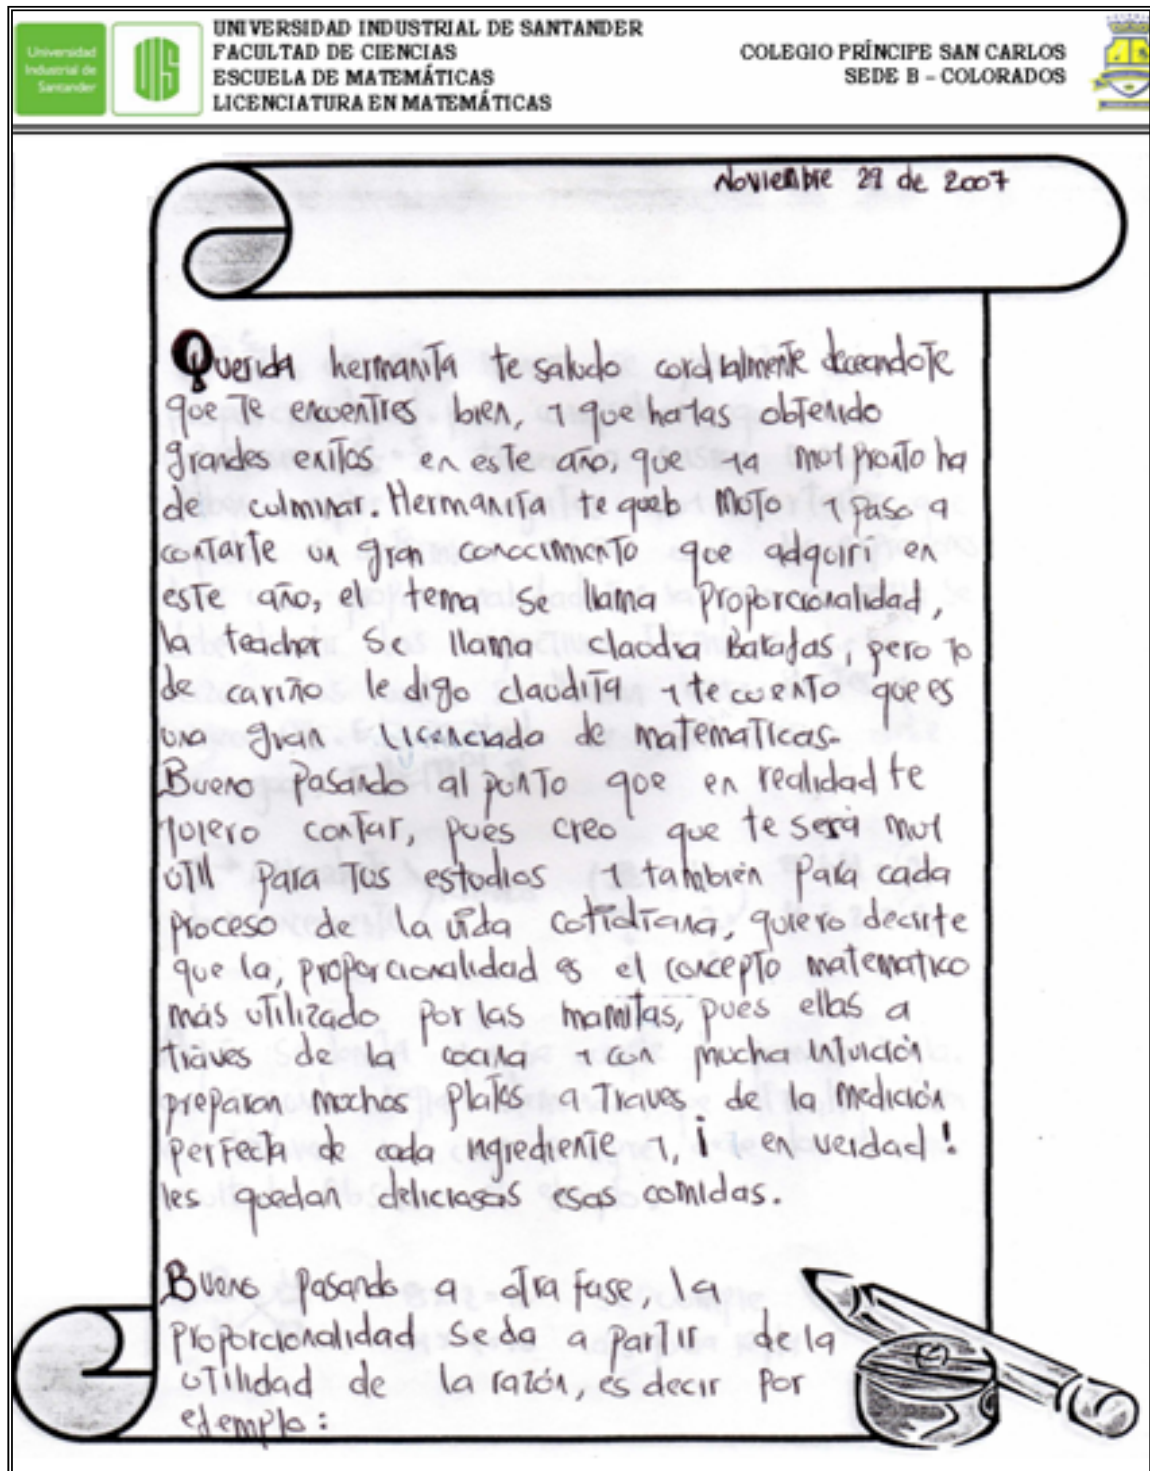 Universidad
Industrial de
Santander
UIS
UNIVERSIDAD INDUSTRIAL DE SANTANDER
FACULTAD DE CIENCIAS
ESCUELA DE MATEMÁTICAS
LICENCIATURA EN MATEMÁTICAS
COLEGIO PRÍNCIPE SAN CARLOS
SEDE B – COLORADOS
Noviembre 29 de 2007
Querida hermanita te saludo cordialmente deceandote
que te encuentres bien, y que hayas obtenido
grandes exitos en este año, que ya muy pronto ha
de culminar. Hermanita te quero muyo y paso a
contarte un gran conocimiento que adquiri en
este año, el tema se llama proporcionalidad,
la teacher se llama claudia Barajas, pero yo
de cariño le digo claudita y te cuento que es
una gran Licenciada de matematicas.
Bueno pasando al punto que en realidad te
quiero contar, pues creo que te será muy
útil para tus estudios y también para cada
proceso de la vida cotidiana, quiero decirte
que la, proporcionalidad es el concepto matematico
más utilizado por las mamitas, pues ellas a
tráves de la cocina y con mucha intuición
preparan muchos platos a traves de la medición
perfecta de cada ingrediente y, ¡ y en verdad !
les quedan deliciosas esas comidas.
Bueno pasando a otra fase, la
proporcionalidad se da a partir de la
utilidad de la razón, es decir por
ejemplo: